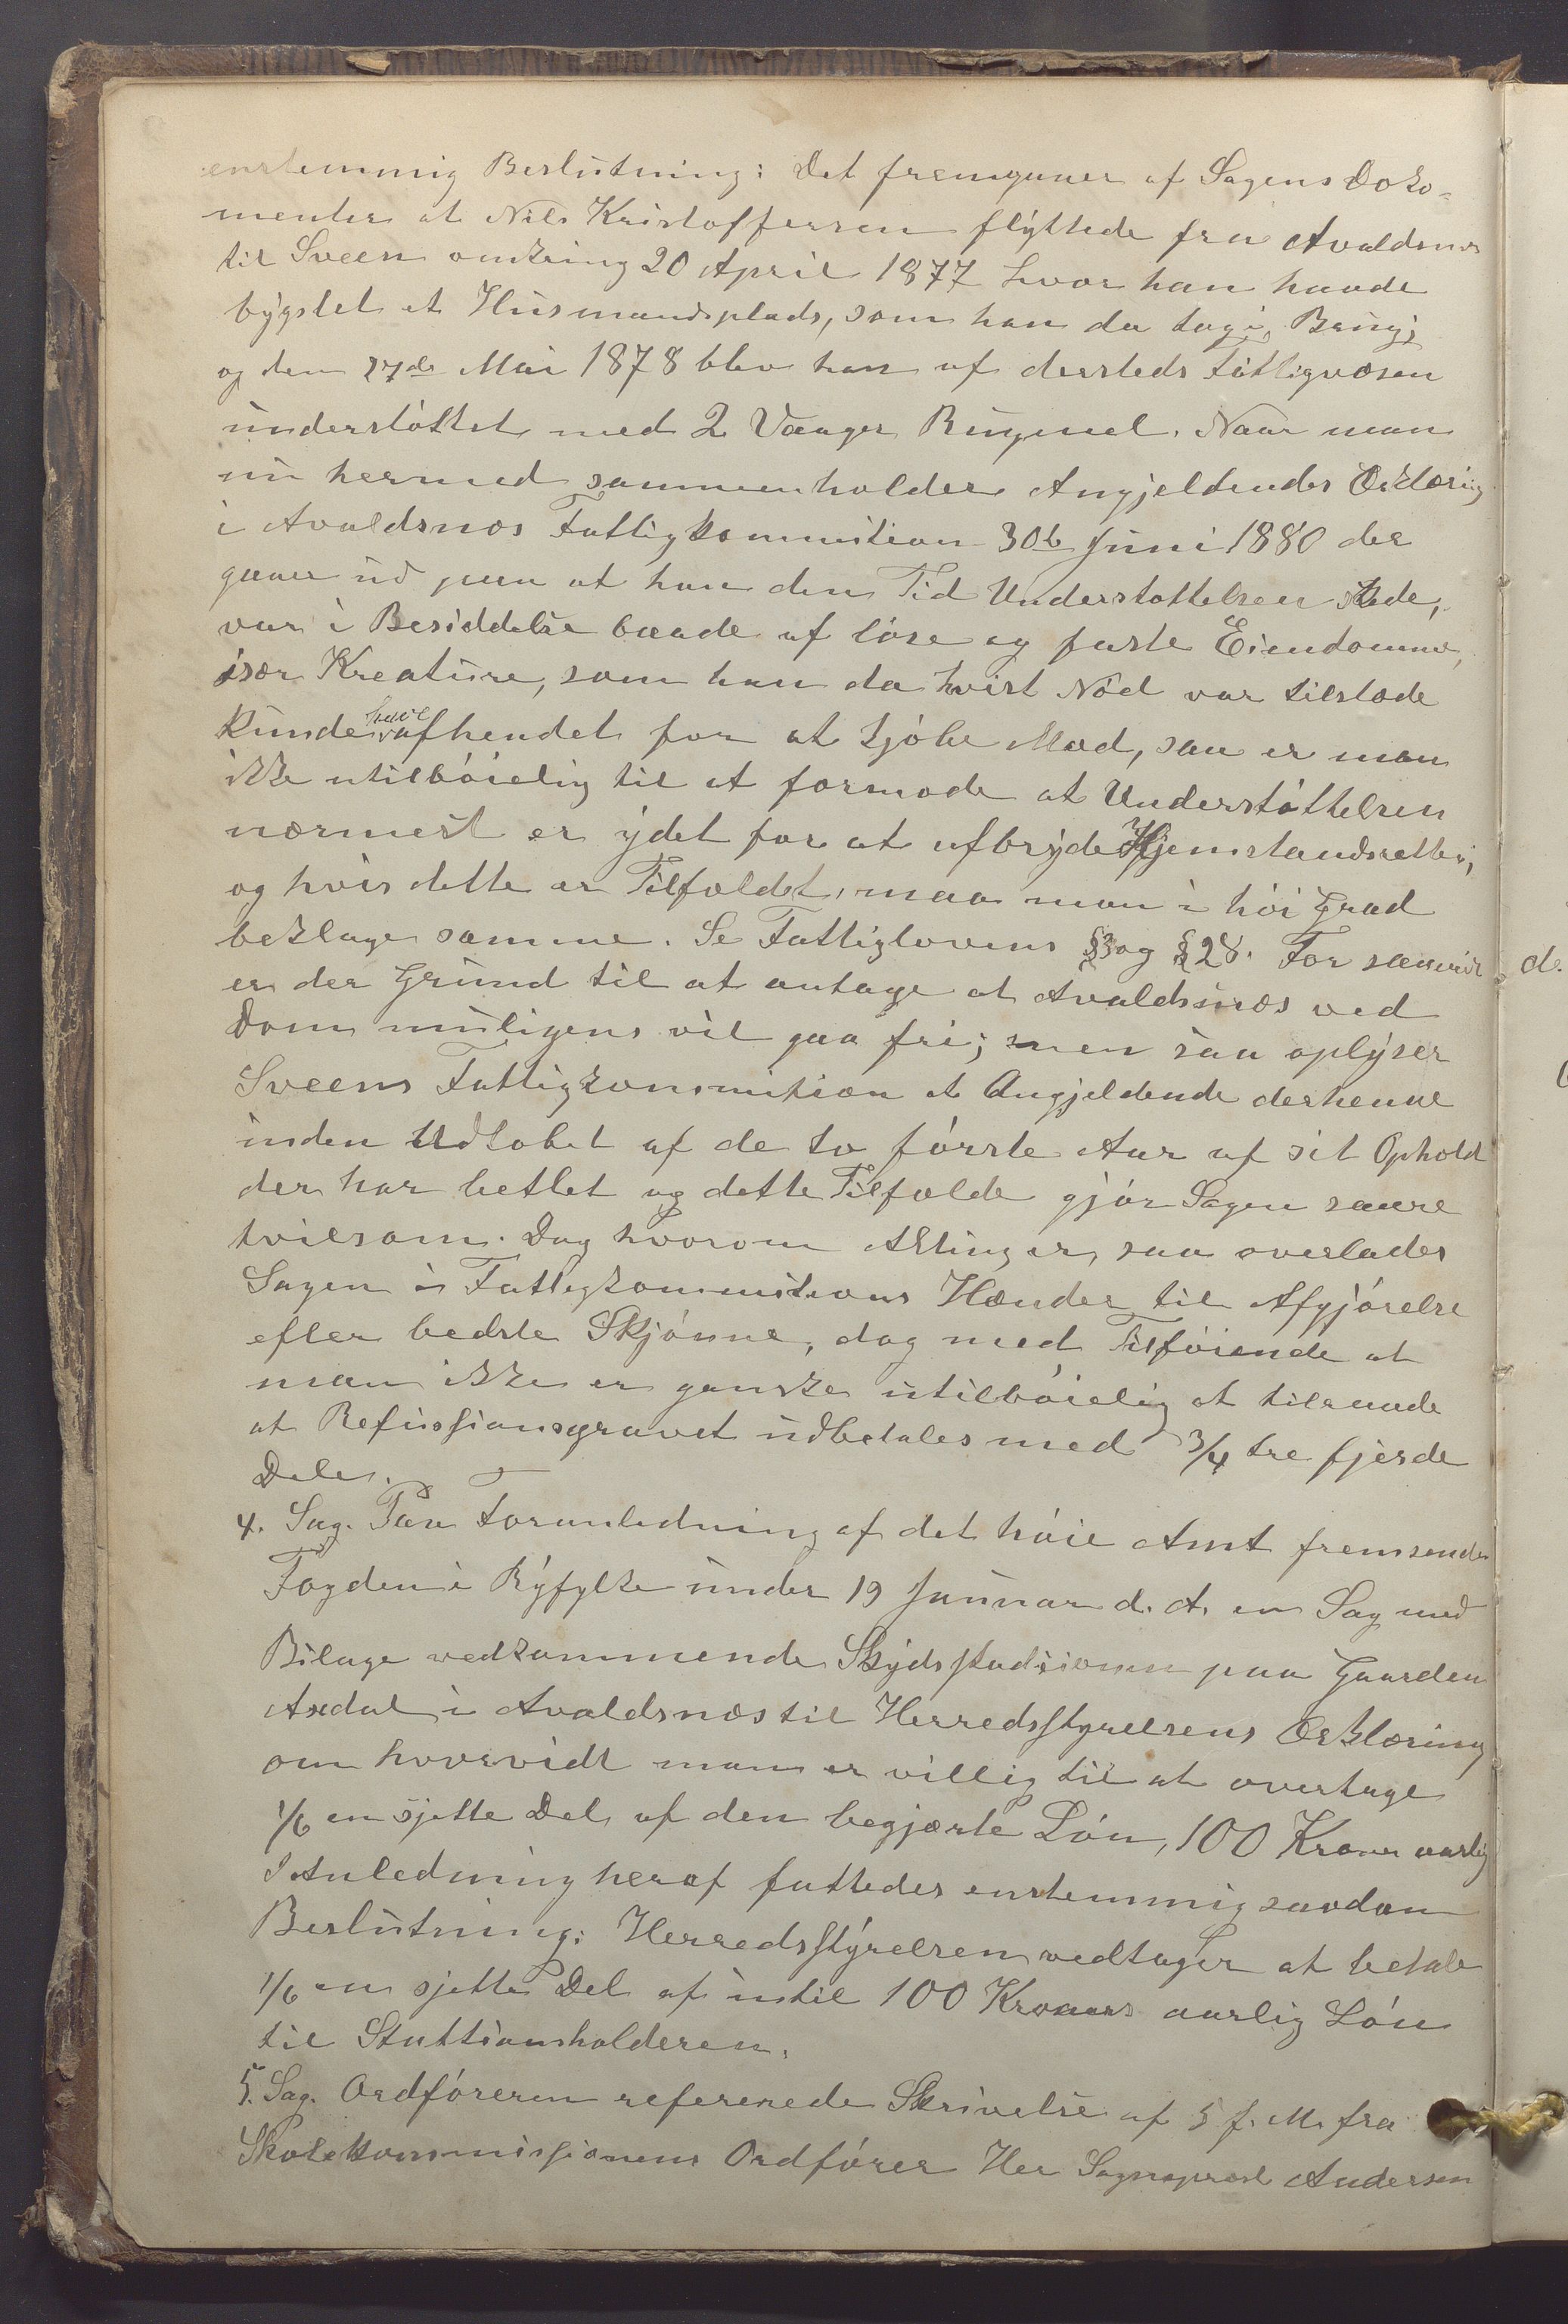 enstemmig Beslutning: Det fremgaaer af Sagens Doko-
menter at Nils Kristoffersen flyttede fra Avaldsnes
til Sveen omkring 20 April 1877 hvor han havde
bygslet et Husmandsplads, som han da tog i Brug;
og den 27de Mai 1878 blev han af dersteds Fattigvæsen
understøttet med 2 Vaager Bugmel. Naar man
nu hermed sammenholder Angjeldendes Erklæring
i Avaldsnæs Fattigkommition 30te Juni 1880 der
gaaer ud paa at han den Tid Understøttelsen skede,
var i Besiddelse baade af løse og faste Eiendomme,
især Kreature, som han da hvist Nød var tilstæde
kunde have afhendet for at kjøbe Mad, saa er man
ikke utilbøielig til at formode at Understøttelsen
nærmest er ydet for at afbryde Hjemstandsretten,
og hvis dette er Tilfældet, maa man i høi Grad
beklage samme. Se Fattiglovens §3 og §28. For saavidt
er der Grund til at antage at Avaldsnæs ved
Dom muligens vil gaa fri; men saa oplyser
Sveens Fattigkommition at Angjeldende derhenne
inden Udløbet af de to første Aar af sit Ophold
der har betlet og dette Tilfælde gjør Sagen saare
tvilsom. Dog hvorom Alting er, saa overlades
Sagen i Fattigkommitions Hænder til Afgjørelse
efter bedste Skjønne, dog med Tilføiende at
man ikke er ganske utilbøielig at tilraade
at Refussionsgravet udbetales med 3/4 tre fjerde
Dele.
4. Sag. Paa Foranledning af det høie Amt fremsender
Fogden i Ryfylke under 19 Januar d. A. en Sag med
Bilage vedkommende Skydsstadsionen paa Gaarden
Axdal i Avaldsnæs til Herredsstyrelsens Erklæring
om hvorvidt man er villig til at overtage
1/6 en sjette Del af den begjærte Løn, 100 Kroner aarlig
I Anledning heraf fattedes enstemmig saadan
Beslutning: Herredsstyrelsen vedtager at betale
1/6 en sjette Del af intil 100 Kroners aarlig Løn
til Stattionsholderen.
5. Sag. Ordføreren refererede Skrivelse af 5 f. M. fra
Skolekommissionens Ordfører Her Sogneprest Andersen
de